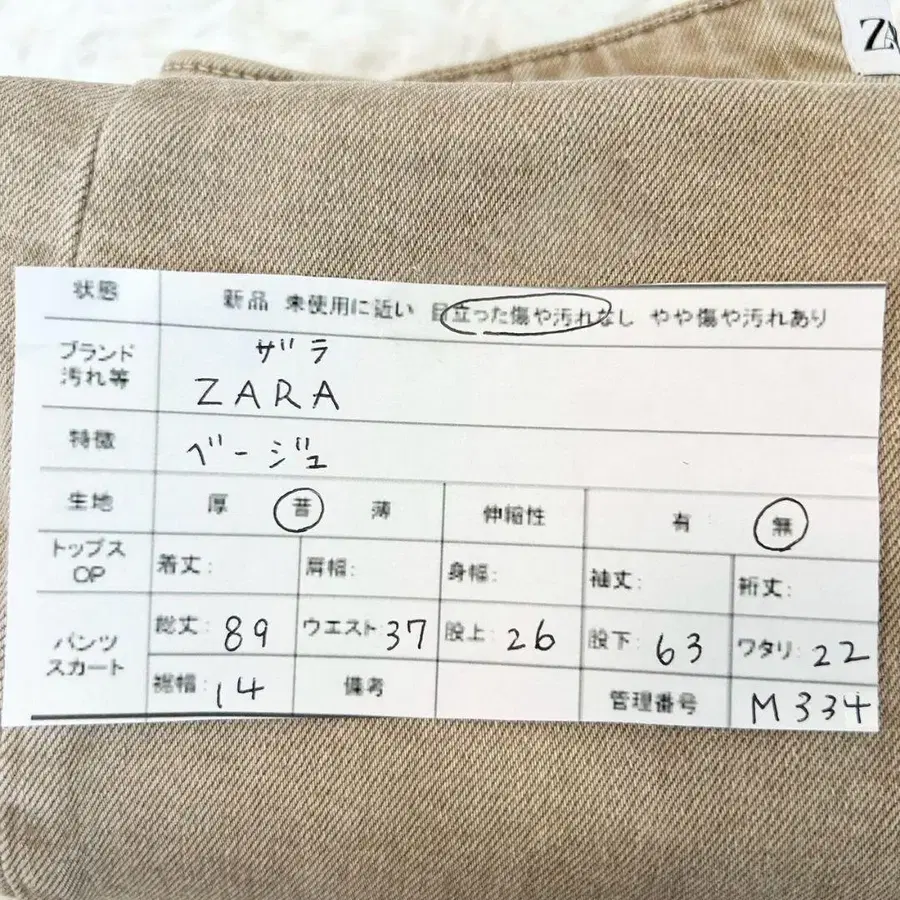 ZA
状態 新品 未使用に近い 目立った傷や汚れなし やや傷や汚れあり
ブランド ザラ
汚れ等 ZARA
特徴 ベージュ
生地 厚 普 薄 伸縮性 有 無
トップス
OP 着丈: 肩幅: 身幅: 袖丈: 裄丈:
パンツ
スカート 総丈: 89 ウエスト: 37 股上: 26 股下: 63 ワタリ: 22
裾幅: 14 備考 管理番号 M334